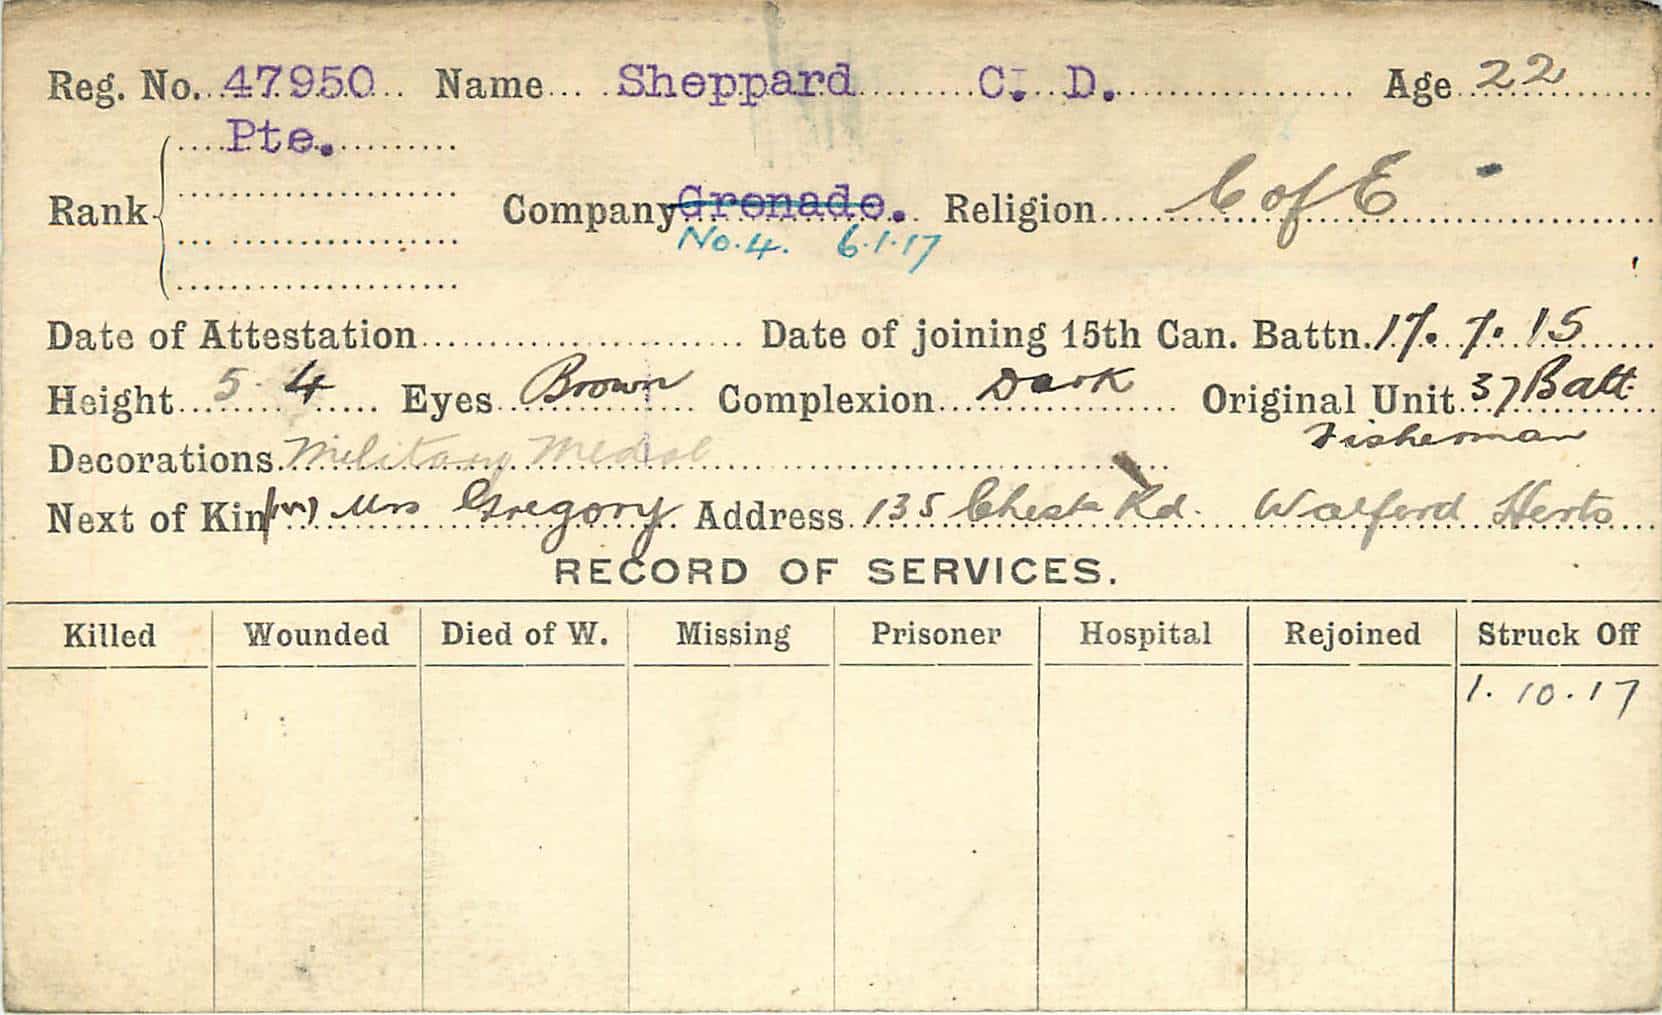 Reg. No. 47950 Name Sheppard C. D. Age 22
Pte.
Rank Company Grenade. Religion C of E
No. 4. 6.1.17
Date of Attestation Date of joining 15th Can. Battn. 17. 7. 15
Height 5 4 Eyes Brown Complexion Dark Original Unit 37 Batt.
Fisherman
Decorations Military Medal
Next of Kin (m) Mrs Gregory Address 135 Chest Rd. Watford Herts
RECORD OF SERVICES.
Killed Wounded Died of W. Missing Prisoner Hospital Rejoined Struck Off
1. 10. 17